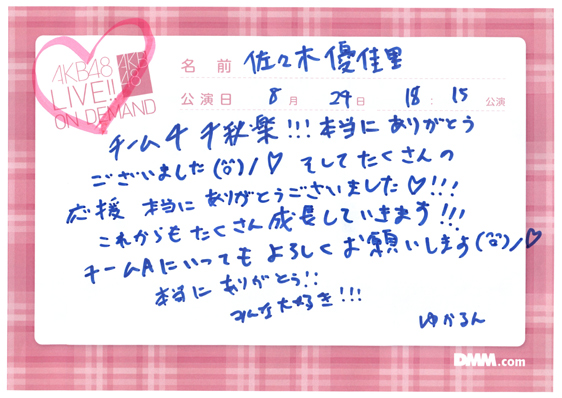 AKB48
LIVE!!
ON DEMAND
AKB
48
名前 佐々木優佳里
公演日 8月 24日 18:15 公演
チーム4 千秋楽!!! 本当に ありがとう
ございました(^o^)/♡ そして たくさんの
応援 本当に ありがとうございました♡!!!
これからも たくさん 成長していきます!!!
チームAにいっても よろしく お願いします(^o^)/♡
本当に ありがとう!!
みんな大好き!!!
ゆかるん
DMM.com